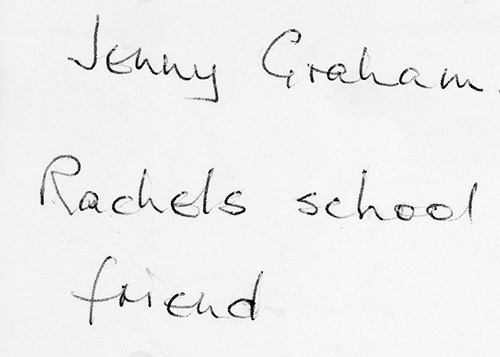 Jenny Graham.
Rachels school
friend